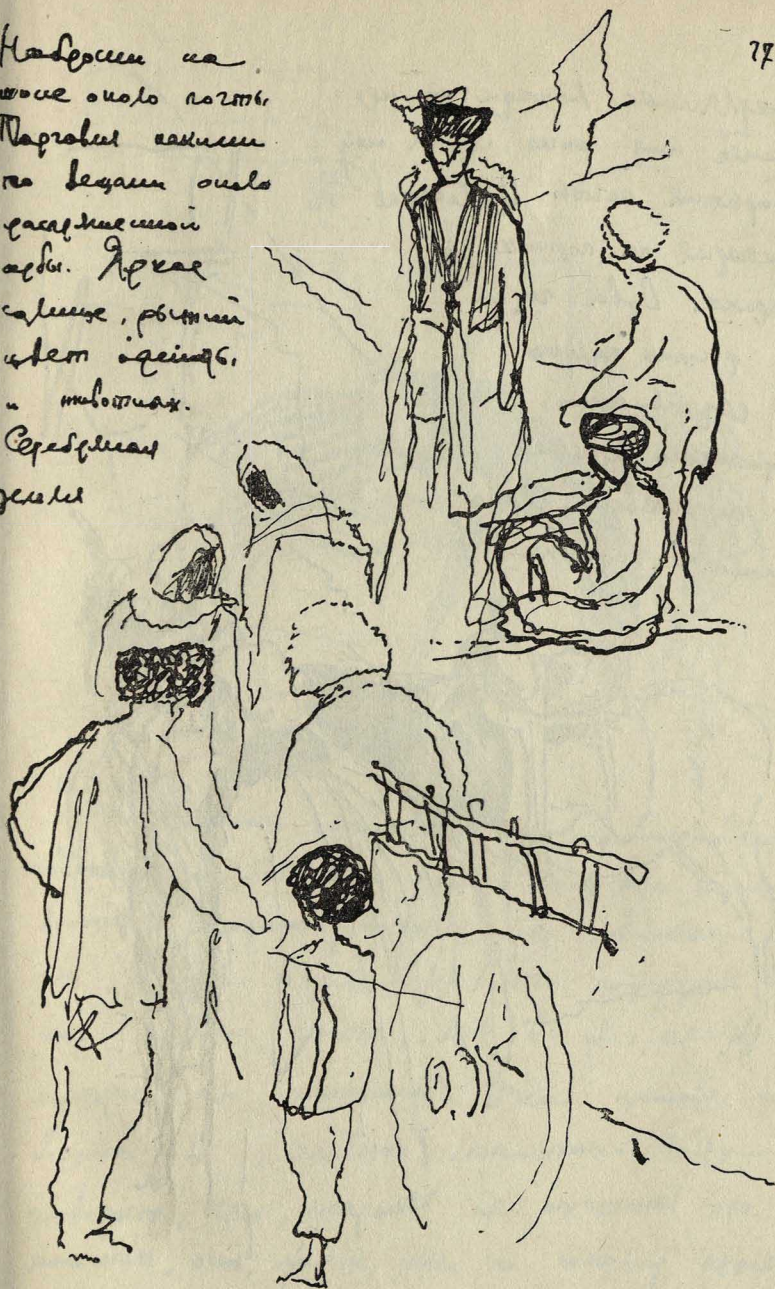 Наброски на
шосе около почты.
Торговля какими
то вещами около
распряженной
арбы. Яркое
солнце, рыжий
цвет одежды,
и животных.
Серебряная
земля